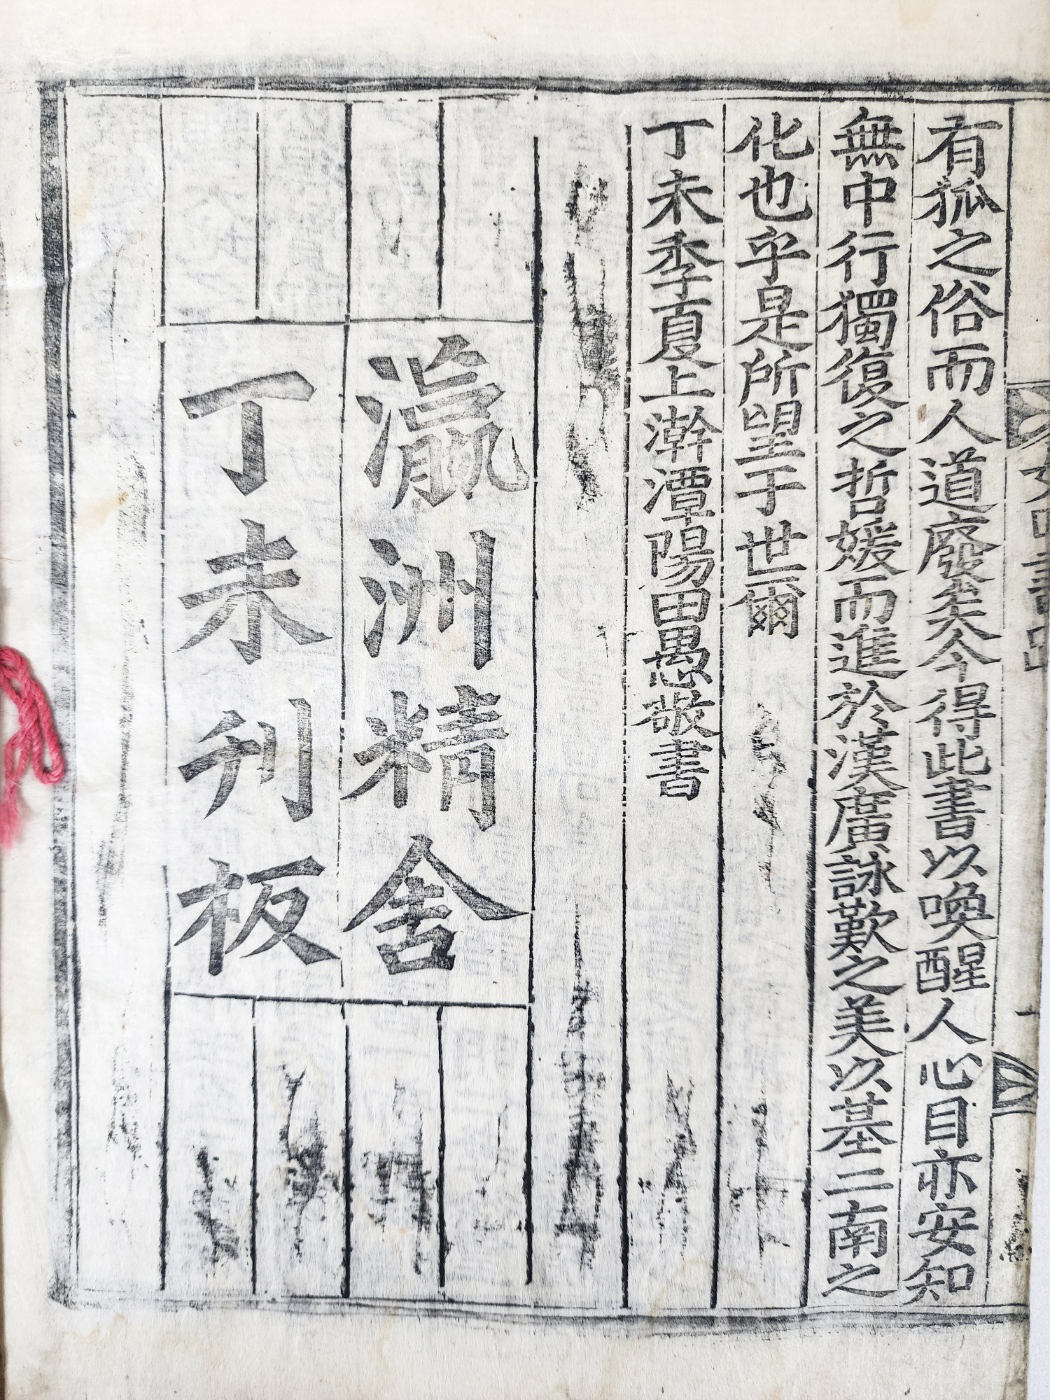 有狐之俗而人道廢矣今得此書以喚醒人心目亦安知
無中行獨復之哲媛而進於漢廣詠歎之美以基二南之
化也乎是所望于世爾
丁未季夏上澣潭陽田愚敬書
瀛洲精舍
丁未刊板